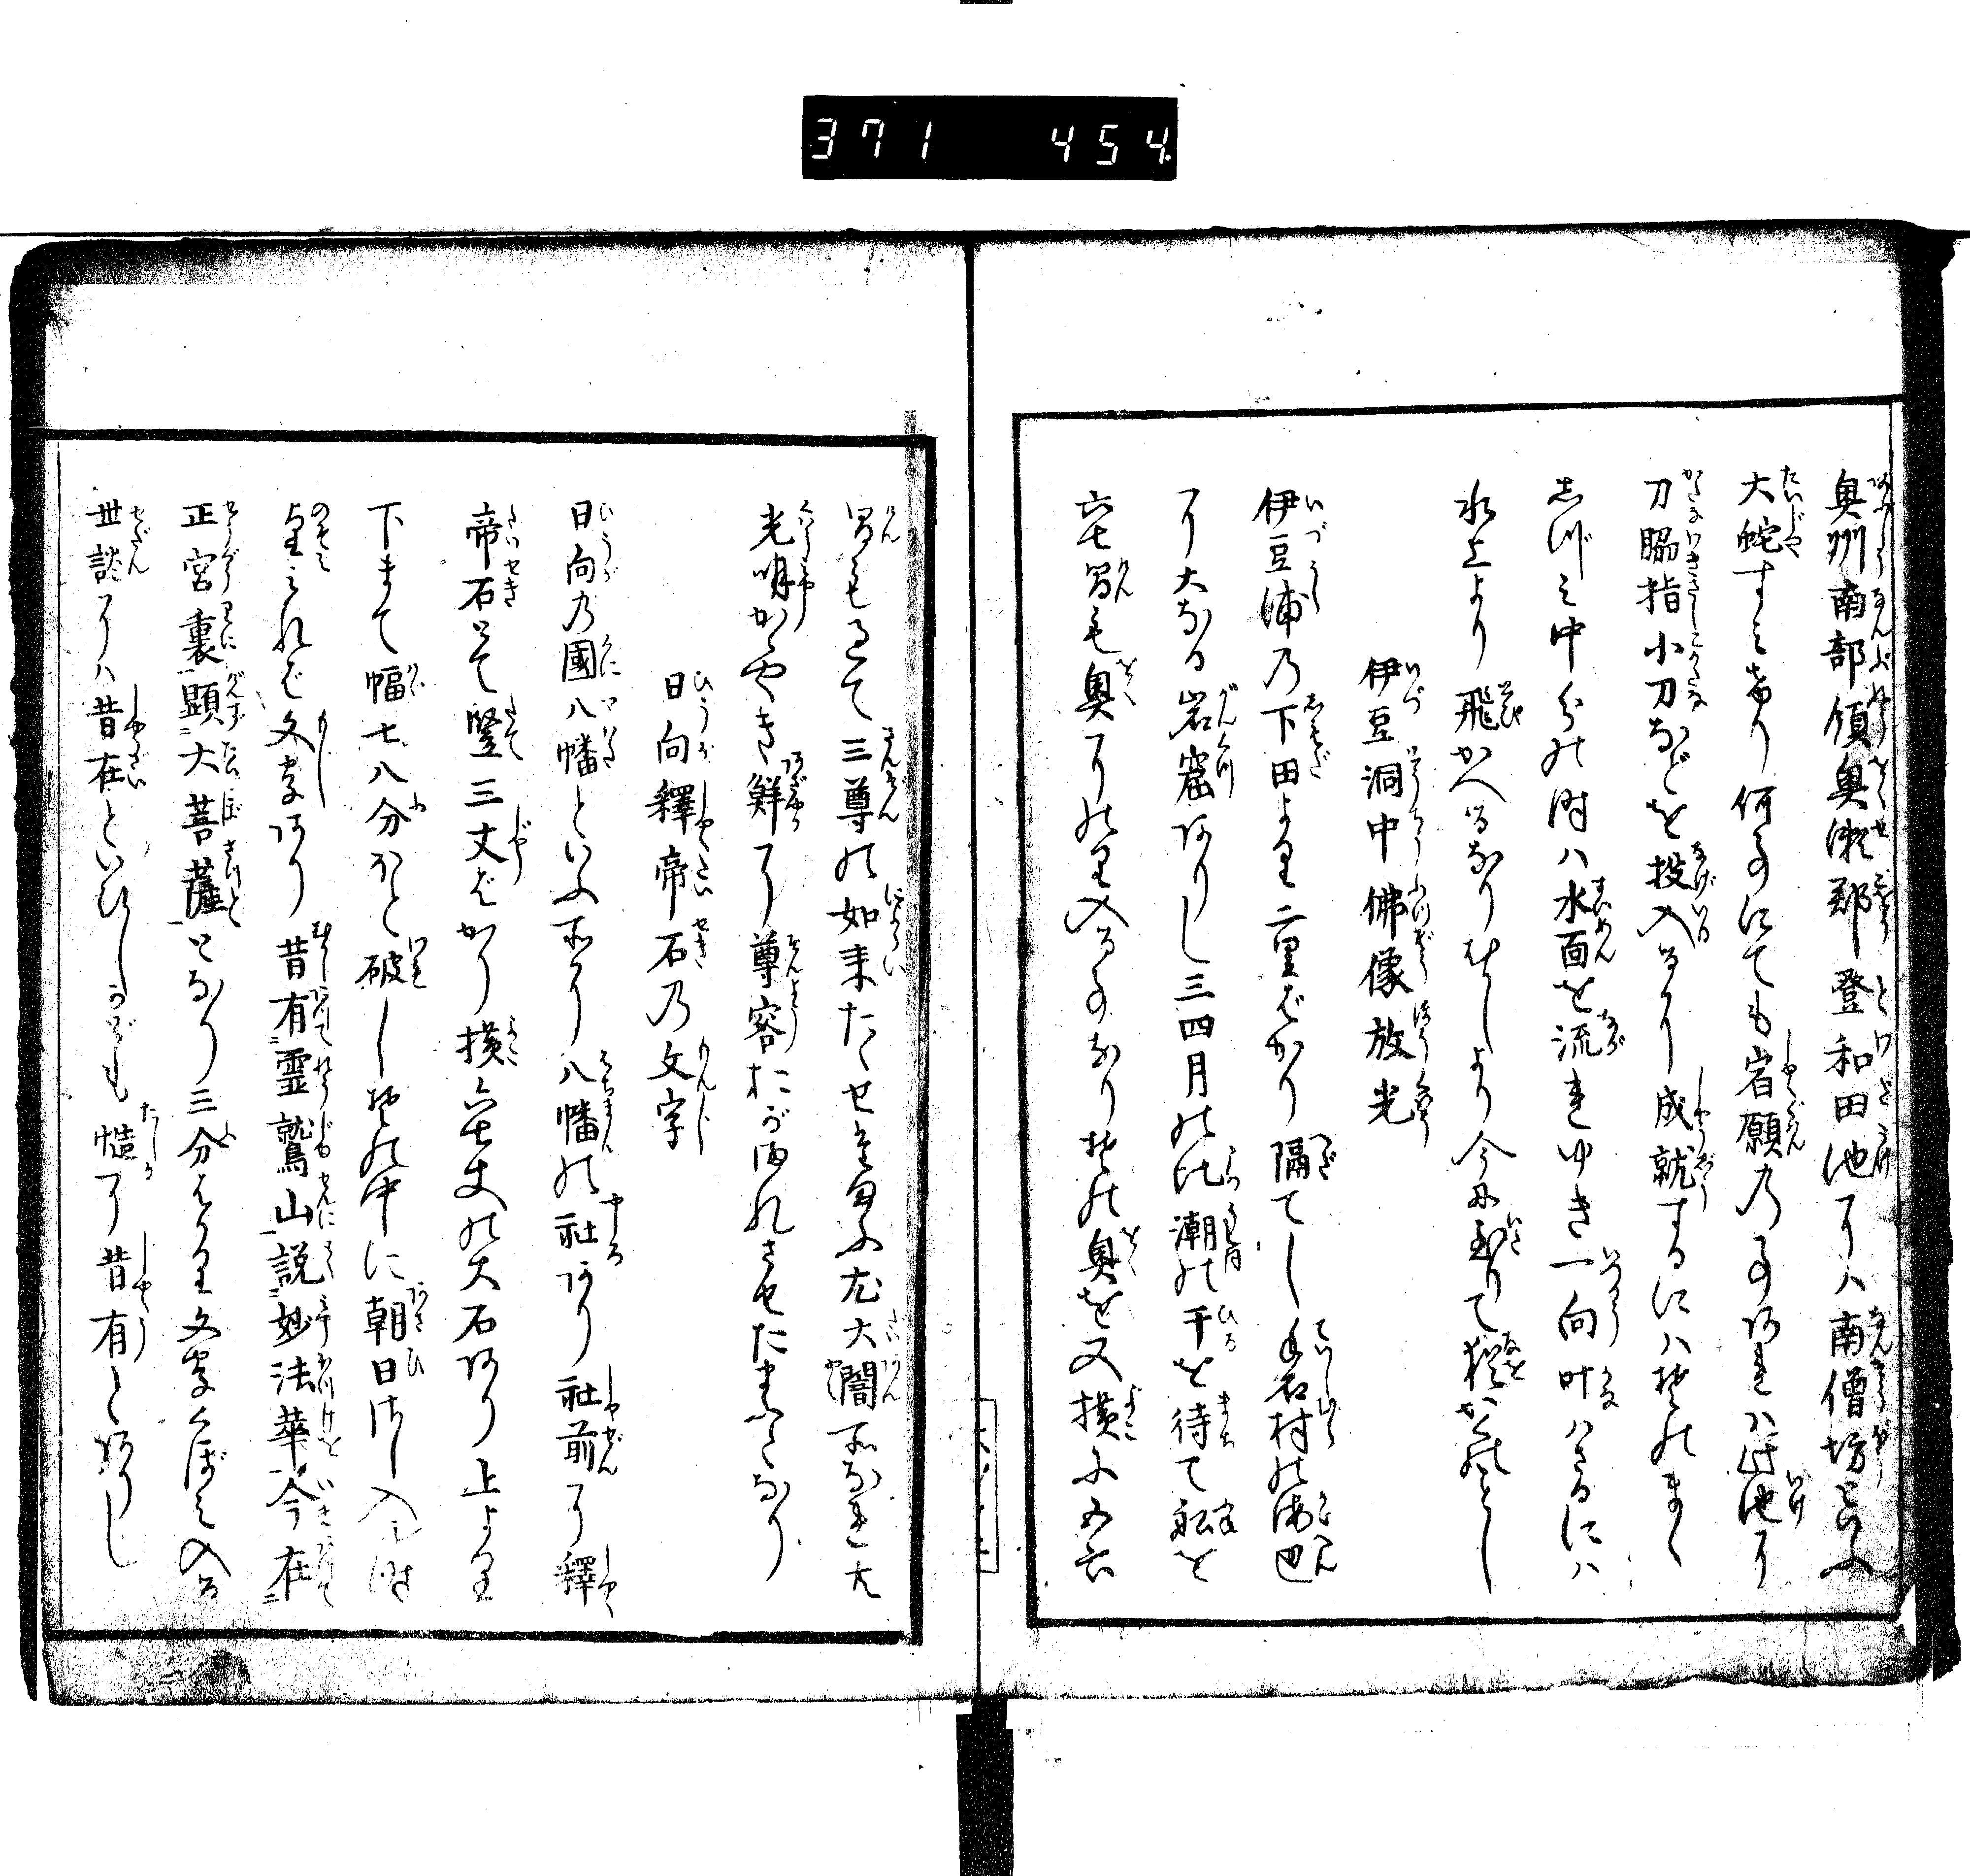 371 454
奥州南部領奥瀬郡登和田池にハ南僧坊といへ
大蛇すみけり何事にても宿願の事あれハ此池に
刀脇指小刀などを投入るなり成就するにハ其まゝ
しづミ叶の時ハ水面を流れゆき一向叶ハさるにハ
水上より飛かへるなりむかしより今に至りて猶かくのとし
伊豆洞中佛像放光
伊豆浦の下田より二里ばかり隔てし手石村の海辺
に大なる岩窟ありし三四月の比潮の干を待て舩を
六七間も奥にのり入る事なり其の奥を又横に五六
間も過て三尊の如来たゝせ給ふ尤大闇所なれ共
光明かゞやき鮮に尊容おがまれさせたまふなり
日向釋帝石の文字
日向の國八幡といふ所に八幡の社あり社前に釋
帝石とて竪三丈ばかり横六七丈の大石あり上より
下まて幅七八分ほと破し其の中に朝日さし入る時
望みれば文字あり昔有霊鷲山説妙法華今在
正宮裏顕大菩薩となり三分はかり文字くぼみ入る
世談にハ昔在といひしかども慥に昔有とありし